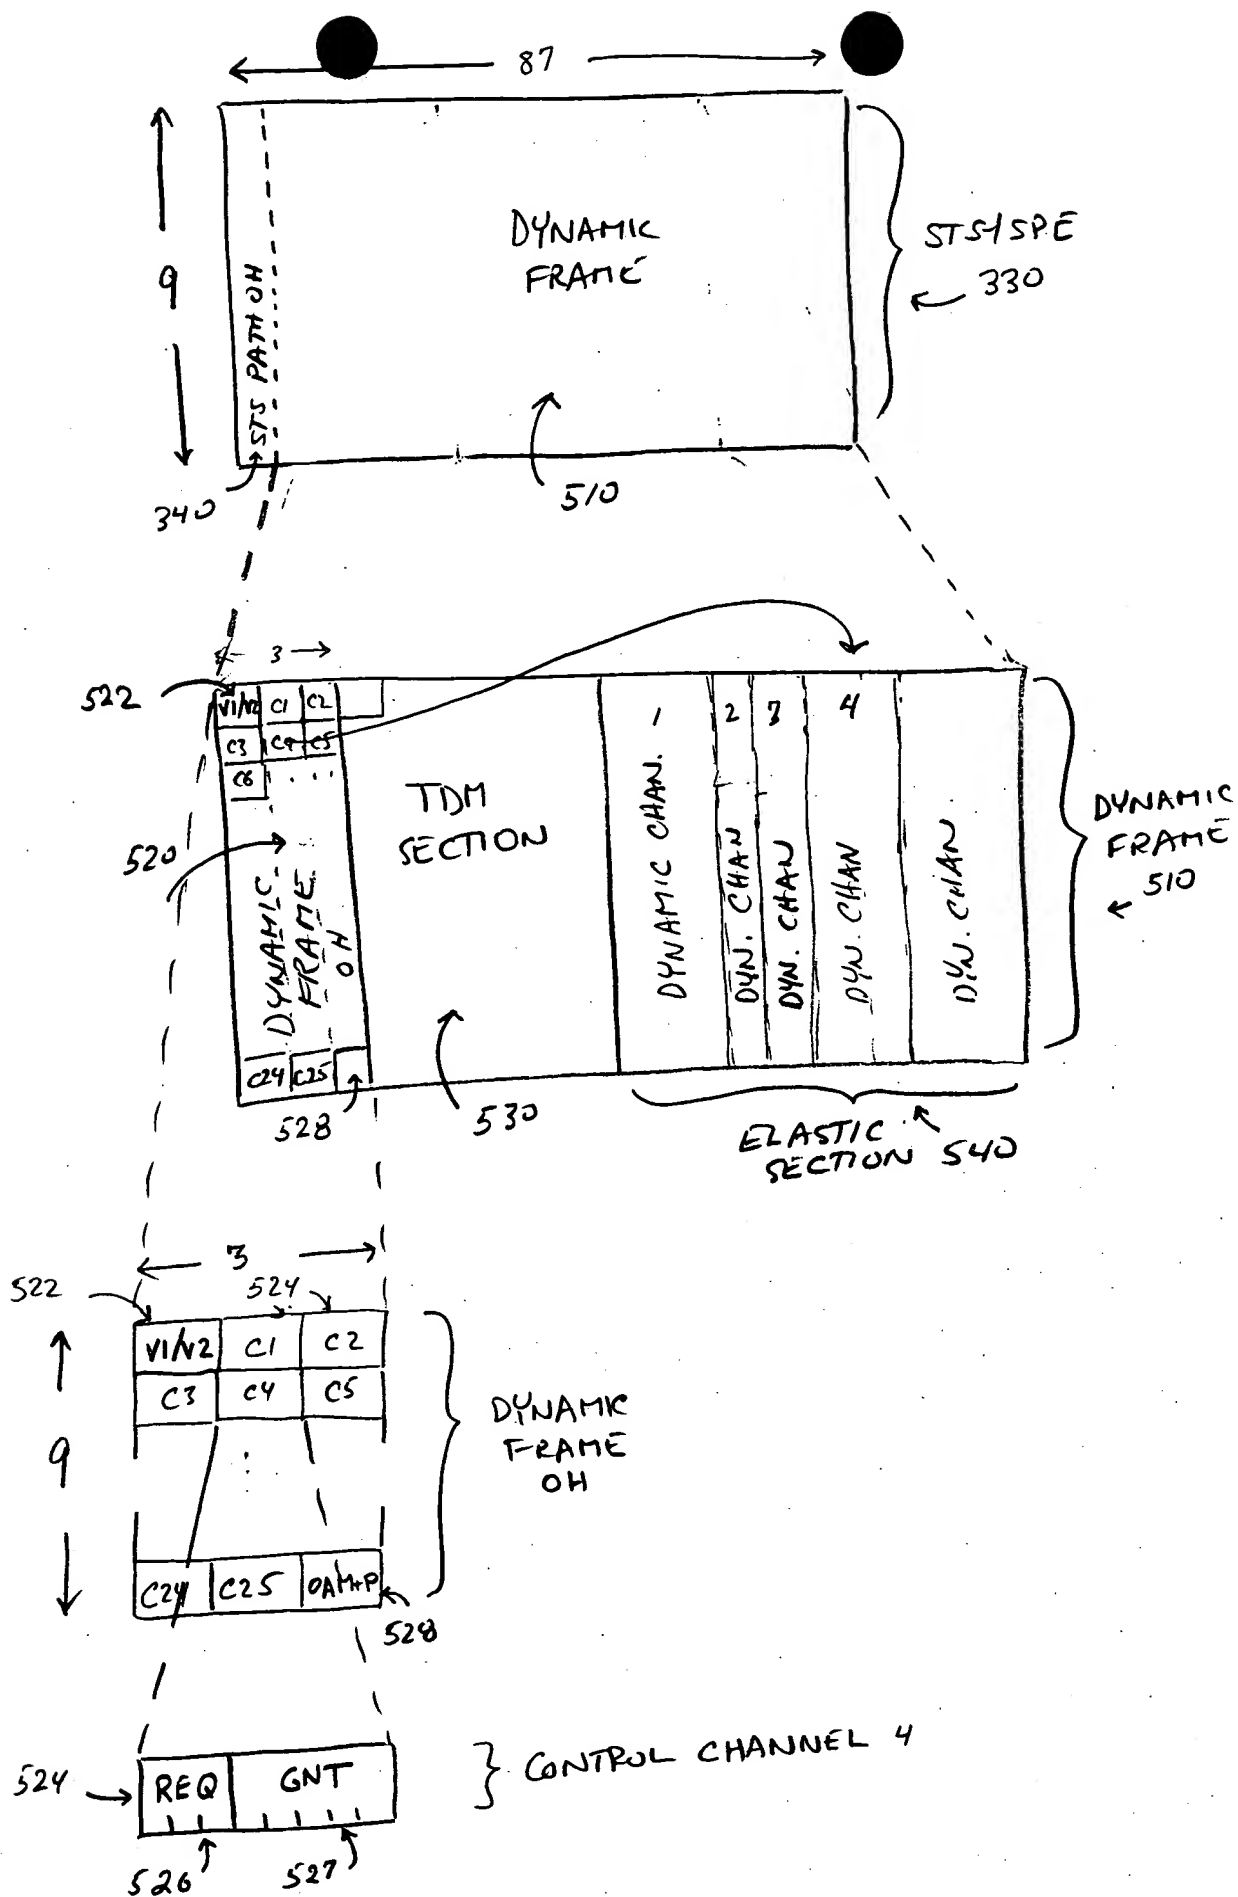 87
9
STS PATH OH
DYNAMIC
FRAME
STS1 SPE
330
340
510
3
522
V1/V2 C1 C2
C3 C4 C5
C6 ...
520
DYNAMIC
FRAME
OH
C24 C25
528
TDM
SECTION
530
1 2 3 4
DYNAMIC CHAN.
DYN. CHAN
DYN. CHAN
DYN. CHAN
DYN. CHAN
DYNAMIC
FRAME
510
ELASTIC
SECTION 540
3
522
524
9
V1/V2 C1 C2
C3 C4 C5
C24 C25 OAM+P
528
DYNAMIC
FRAME
OH
524
REQ GNT
CONTROL CHANNEL 4
526
527